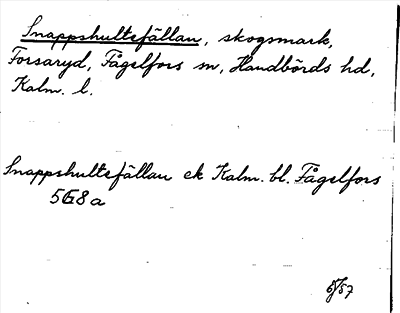 Snappshultefällan, skogsmark,
Forsaryd, Fågelfors sn, Handbörds hd,
Kalm. l.
Snappshultefällan ek Kalm. bl. Fågelfors
5G8a